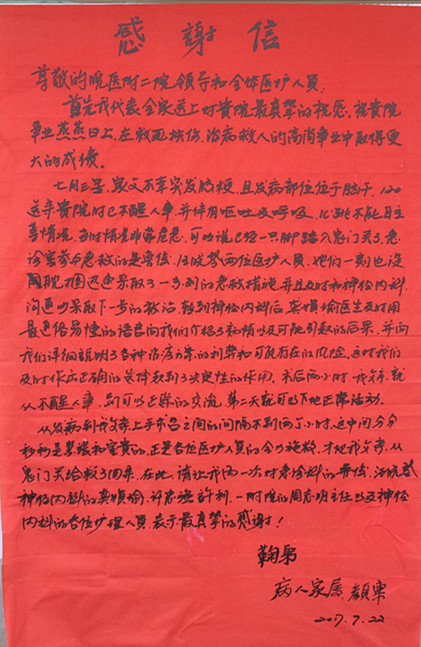 感謝信
尊敬的皖医附二院领导和全体医护人员:
首先我代表全家送上对贵院最真挚的祝愿,祝贵院
事业蒸蒸日上,在救死扶伤,治病救人的高尚事业中取得更
大的成绩。
七月三号,家父不幸突发脑梗,且发病部位位于脑干,120
送来贵院时已不醒人事,并伴有呕吐及呼吸,心跳不能自主
等情况,当时情况非常危急,可以说已经一只脚踏入鬼门关了,急
诊室参与急救的是 两位医护人员,她们一刻也没
采取了一系列的急救措施并且及时和神经内科
沟通以采取下一步的救治,转到神经内科后,袁 医生及时用
最通俗易懂的语言向我们介绍了病情以及可能引起的后果,并向
我们详细说明了各种治疗方案的利弊和可能存在的风险,这对我们
及时作出正确的总体起到了决定性的作用,术后两小时,我父亲就
从不醒人事,到可以正常的交流,第二天就可以下地正常活动。
从发病到我父亲上手术台之间的间隔不到两个小时,这中间分分
秒秒是紧张和宝贵的,正是各位医护人员的全力施救,才把我父亲,从
鬼门关给救了回来,在此,请让我再一次对急诊科的
神经内科的袁 一附院的周志明主任以及神经
内科的各位护理人员,表示最真挚的感谢!
鞠躬
病人家属
2017.7.22